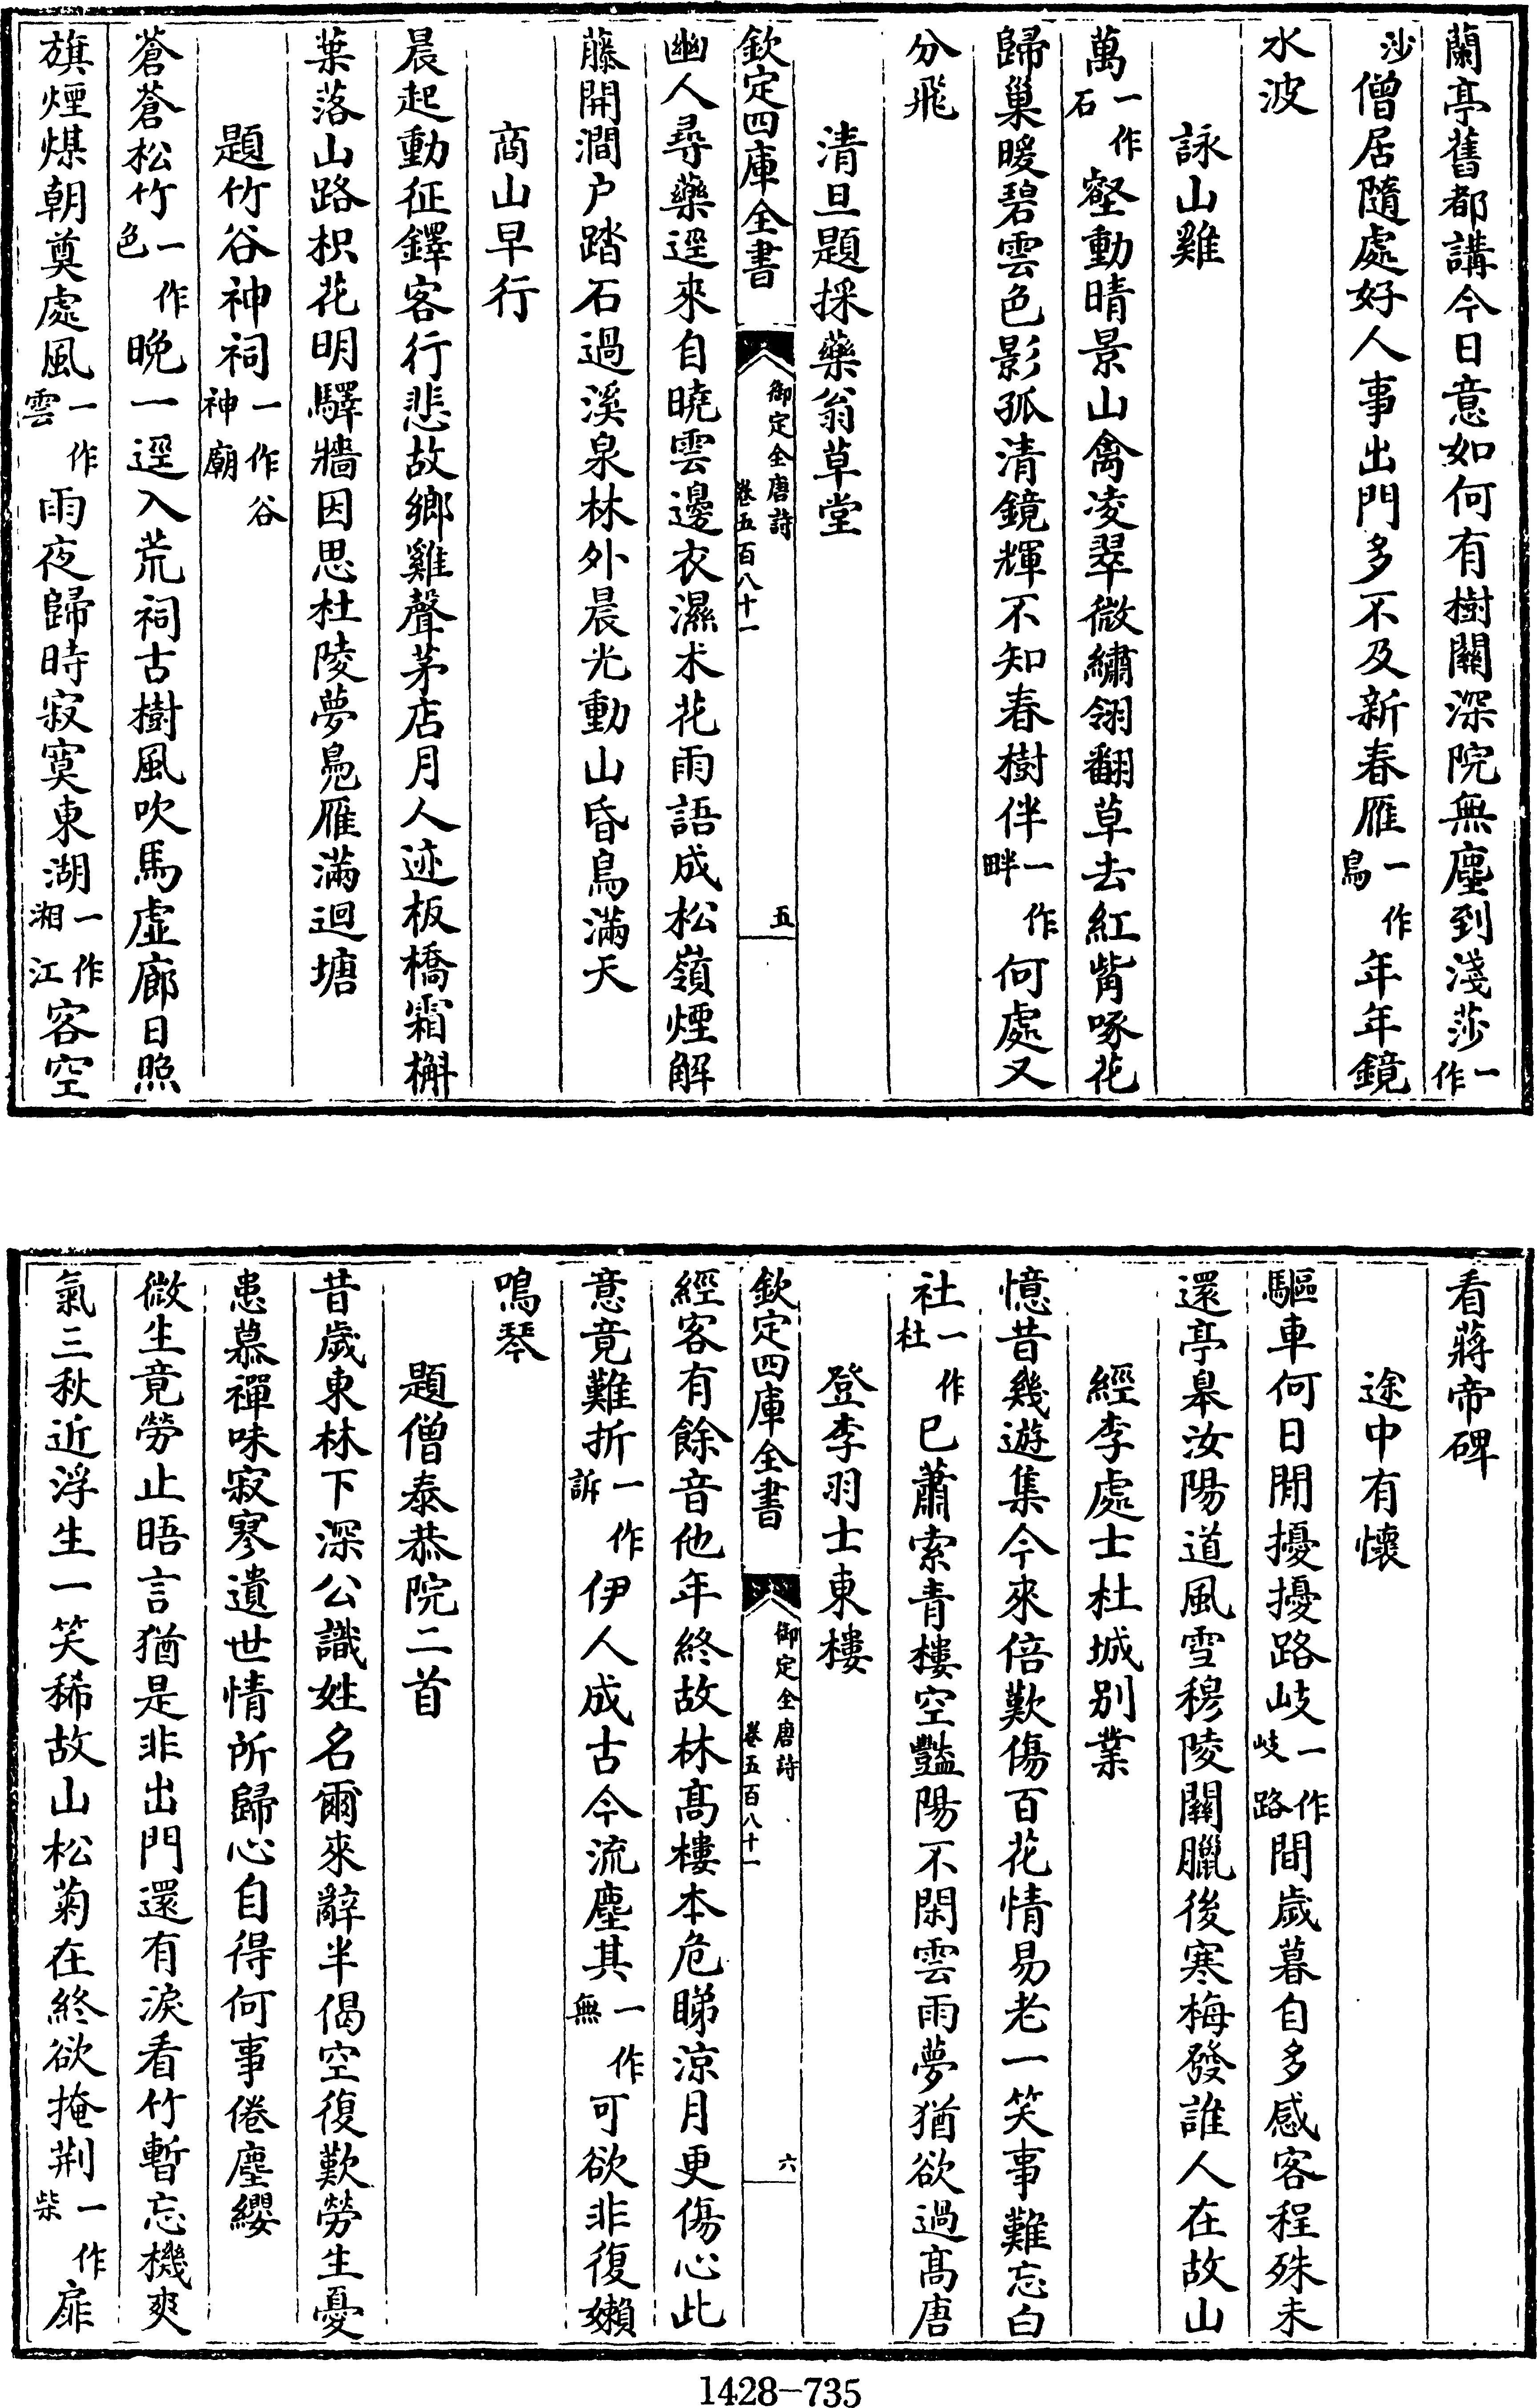 蘭亭舊都講今日意如何有樹關深院無塵到淺莎一作
沙僧居隨處好人事出門多不及新春雁一作鳥年年鏡
水波
詠山雞
萬一作石壑動晴景山禽凌翠微繡翎翻草去紅觜啄花
歸巢暖碧雲色影孤清鏡輝不知春樹伴一作畔何處又
分飛
清旦題採藥翁草堂
欽定四庫全書
御定全唐詩
卷五百八十一
五
幽人尋藥逕來自曉雲邊衣濕术花雨語成松嶺煙解
藤開澗户踏石過溪泉林外晨光動山昏鳥滿天
商山早行
晨起動征鐸客行悲故鄉雞聲茅店月人迹板橋霜槲
葉落山路枳花明驛牆因思杜陵夢鳧雁滿迴塘
題竹谷神祠一作谷神廟
蒼蒼松竹一作色晚一逕入荒祠古樹風吹馬虛廊日照
旗煙煤朝奠處風一作雲雨夜歸時寂寞東湖一作湘江客空
看蔣帝碑
途中有懷
驅車何日閒擾擾路岐一作岐路間歲暮自多感客程殊未
還亭皋汝陽道風雪穆陵關臘後寒梅發誰人在故山
經李處士杜城别業
憶昔幾遊集今來倍歎傷百花情易老一笑事難忘白
社一作杜已蕭索青樓空豔陽不閑雲雨夢猶欲過髙唐
登李羽士東樓
欽定四庫全書
御定全唐詩
卷五百八十一
六
經客有餘音他年終故林髙樓本危睇涼月更傷心此
意竟難折一作訴伊人成古今流塵其一作無可欲非復嬾
鳴琴
題僧泰恭院二首
昔歲東林下深公識姓名爾來辭半偈空復歎勞生憂
患慕禪味寂寥遺世情所歸心自得何事倦塵纓
微生竟勞止晤言猶是非出門還有淚看竹暫忘機爽
氣三秋近浮生一笑稀故山松菊在終欲掩荆一作柴扉
1428-735